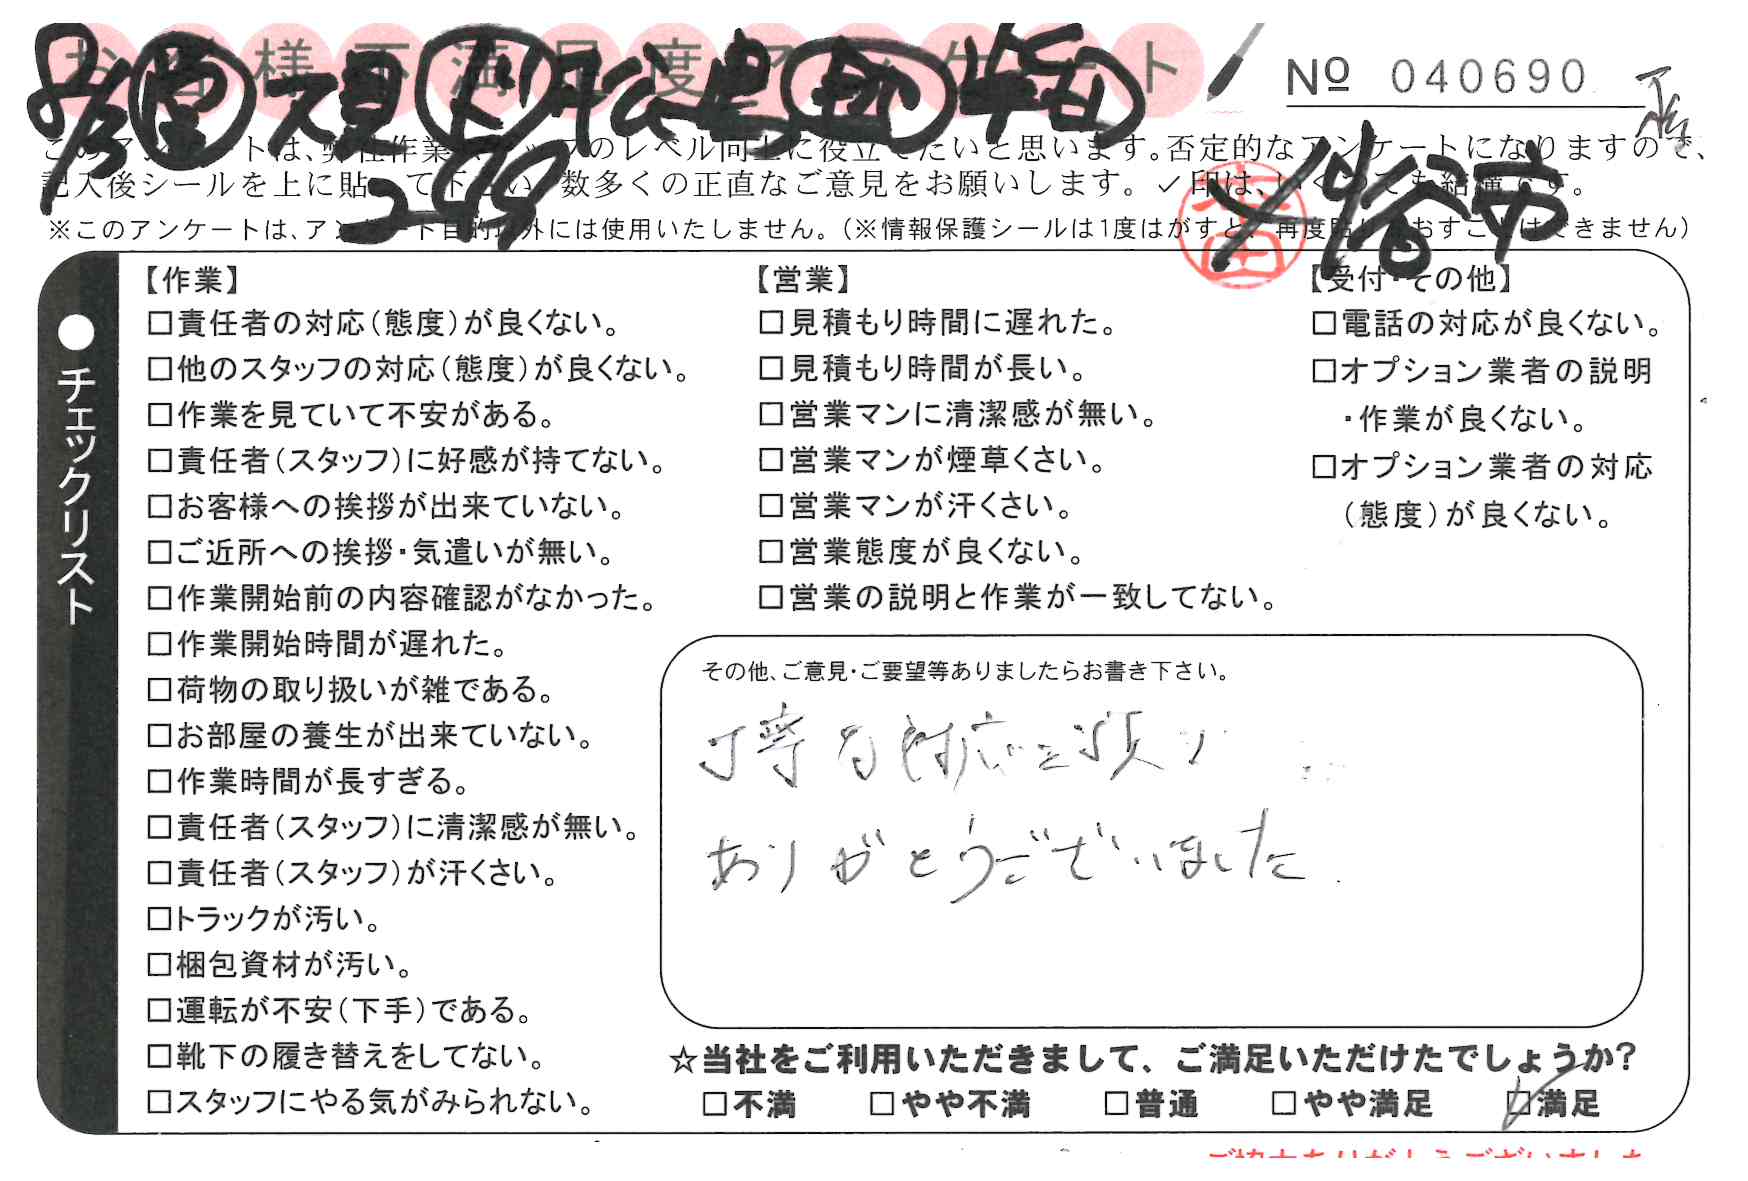 お客様不満足度アンケート
№ 040690
このアンケートは、弊社作業スタッフのレベル向上に役立てたいと思います。否定的なアンケートになりますので、
記入後シールを上に貼って下さい。数多くの正直なご意見をお願いします。✓印は、いくつでも結構です。
※このアンケートは、アンケート目的以外には使用いたしません。(※情報保護シールは1度はがすと、再度貼りなおすことはできません)
249
市
●チェックリスト
【作業】
□責任者の対応(態度)が良くない。
□他のスタッフの対応(態度)が良くない。
□作業を見ていて不安がある。
□責任者(スタッフ)に好感が持てない。
□お客様への挨拶が出来ていない。
□ご近所への挨拶・気遣いが無い。
□作業開始前の内容確認がなかった。
□作業開始時間が遅れた。
□荷物の取り扱いが雑である。
□お部屋の養生が出来ていない。
□作業時間が長すぎる。
□責任者(スタッフ)に清潔感が無い。
□責任者(スタッフ)が汗くさい。
□トラックが汚い。
□梱包資材が汚い。
□運転が不安(下手)である。
□靴下の履き替えをしてない。
□スタッフにやる気がみられない。
【営業】
□見積もり時間に遅れた。
□見積もり時間が長い。
□営業マンに清潔感が無い。
□営業マンが煙草くさい。
□営業マンが汗くさい。
□営業態度が良くない。
□営業の説明と作業が一致してない。
【受付・その他】
□電話の対応が良くない。
□オプション業者の説明
・作業が良くない。
□オプション業者の対応
(態度)が良くない。
その他、ご意見・ご要望等ありましたらお書き下さい。
丁寧な対応を頂き
ありがとうございました
☆当社をご利用いただきまして、ご満足いただけたでしょうか?
□不満 □やや不満 □普通 □やや満足 ☑満足
ご協力ありがとうございました